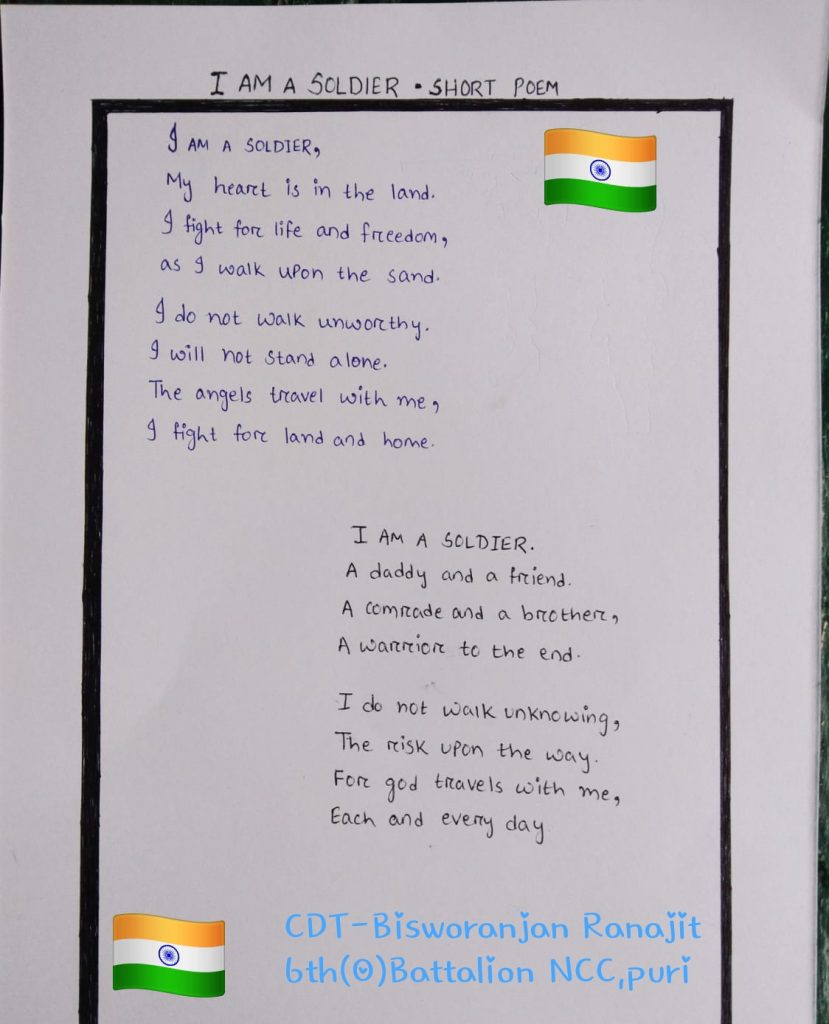 I AM A SOLDIER • SHORT POEM
I AM A SOLDIER,
My heart is in the land.
I fight for life and freedom,
as I walk upon the sand.
I do not walk unworthy.
I will not stand alone.
The angels travel with me,
I fight for land and home.
I AM A SOLDIER.
A daddy and a friend.
A comrade and a brother,
A warrior to the end.
I do not walk unknowing,
The risk upon the way.
For god travels with me,
Each and every day
CDT-Bisworanjan Ranajit
6th(O)Battalion NCC,puri